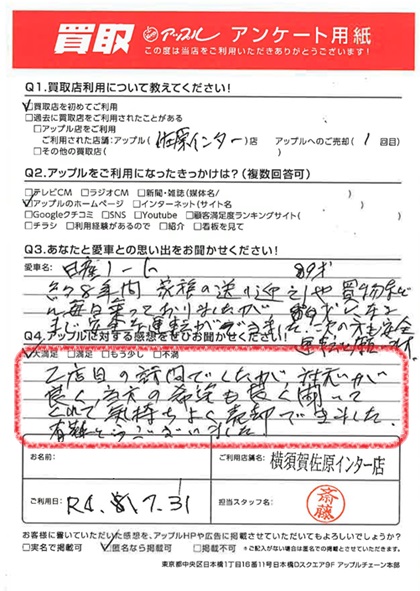 買取 アップル アンケート用紙
この度は当店をご利用いただきありがとうございます!
Q1.買取店利用について教えてください!
☑買取店を初めてご利用
□過去に買取店をご利用されたことがある
□アップル店をご利用
ご利用された店舗:アップル(佐原インター)店 アップルへのご売却(1回目)
□その他の買取店( )
Q2.アップルをご利用になったきっかけは?(複数回答可)
□テレビCM □ラジオCM □新聞・雑誌(媒体名/ )
☑アップルのホームページ □インターネット(サイト名 )
□Googleクチコミ □SNS □Youtube □顧客満足度ランキングサイト( )
□チラシ □利用経験があるので □紹介 □看板を見て
Q3.あなたと愛車との思い出をお聞かせください!
愛車名: 日産ノート 89才
約8年間 家族の送り迎えや買物など
毎日乗っておりましたが
まし 安全な運転ができました
Q4.アップルに対する感想をぜひお聞かせください!
☑大満足 □満足 □もう少し □不満
2店目の訪問でしたが 対応が
良く 当方の希望も良く聞いて
くれて 気持ちよく売却できました
有難とうございました!
お名前:
ご利用店舗名: 横須賀佐原インター店
ご利用日: R4. 7.31
担当スタッフ名: 斎藤
お客様に書いていただいた感想を、アップルHPや広告に掲載させていただいてもよろしいでしょうか?
□実名で掲載可 ☑匿名なら掲載可 □掲載不可 ※ご記入がない場合は匿名での掲載とさせていただきます。
東京都中央区日本橋1丁目16番11号日本橋Dスクエア9F アップルチェーン本部